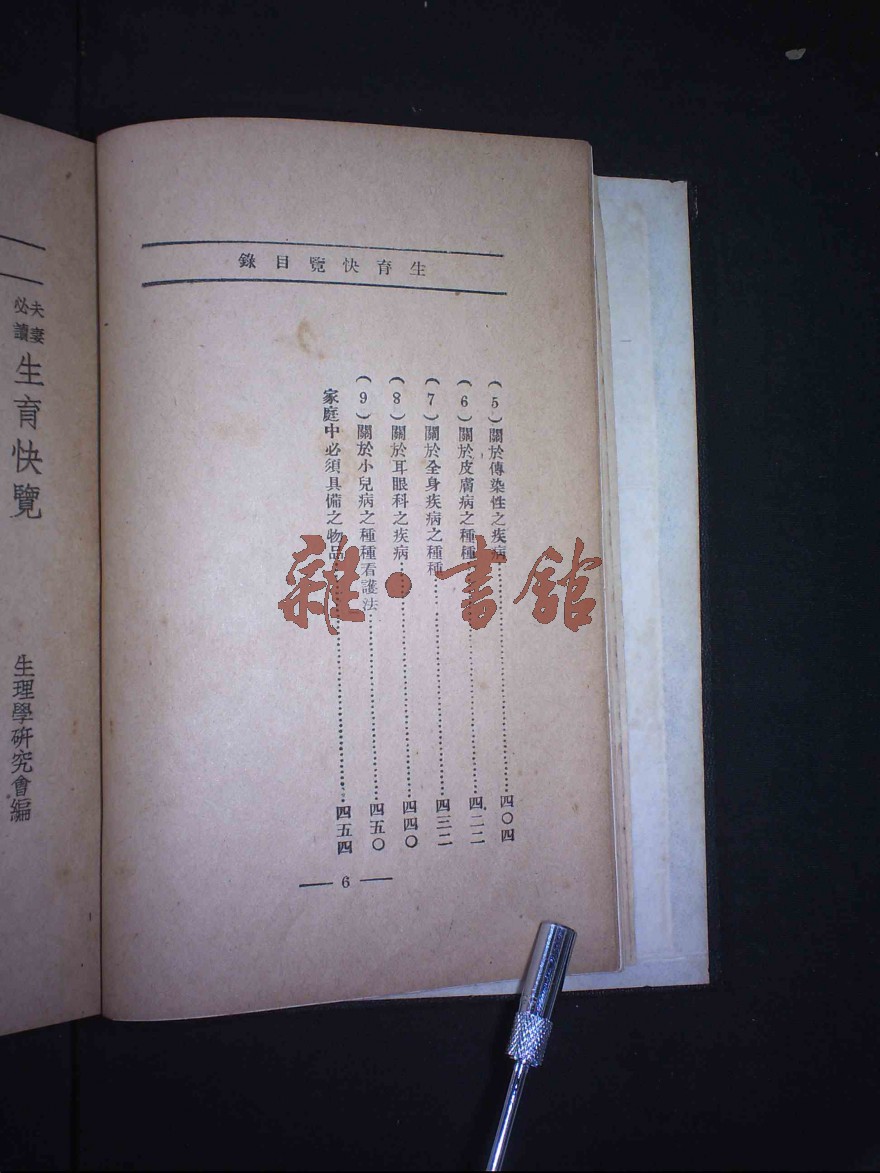 生育快覽目錄
(5)關於傳染性之疾病……四〇四
(6)關於皮膚病之種種……四二二
(7)關於全身疾病之種種……四三二
(8)關於耳眼科之疾病……四四〇
(9)關於小兒病之種種看護法……四五〇
家庭中必須具備之物品……四五四
— 6 —
夫妻
必讀
生育快覽
生理學研究會編
雜·書館